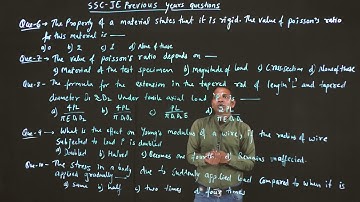 SSC-JE Previous years questions
Que-6 → The Property of a material states that it is rigid. The value of poisson's ratio
for this material is —
a) 0 b) 2 c) 1 d) None of these
Que-7 → The value of poisson's ratio depends on —
a) Material of the test specimen b) Magnitude of load c) Cross section d) None of these
Que-8 - The formula for the extension in the tapered rod of length 'L' and tapered
diameter in D2 Under tensile axial load
a) 4PL / πED1D2 b) 4PL / πD1D2 c) PL
Que-9 - What is the effect on Young's modulus of a wire, if the radius of wire
Subjected to load is doubled
a) Doubled b) Halved c) Becomes one fourth d) Remains unaffected.
Que-10 - The stress in a body due to suddenly applied load compared to when it is
applied gradually
a) same b) half c) two times d) four times